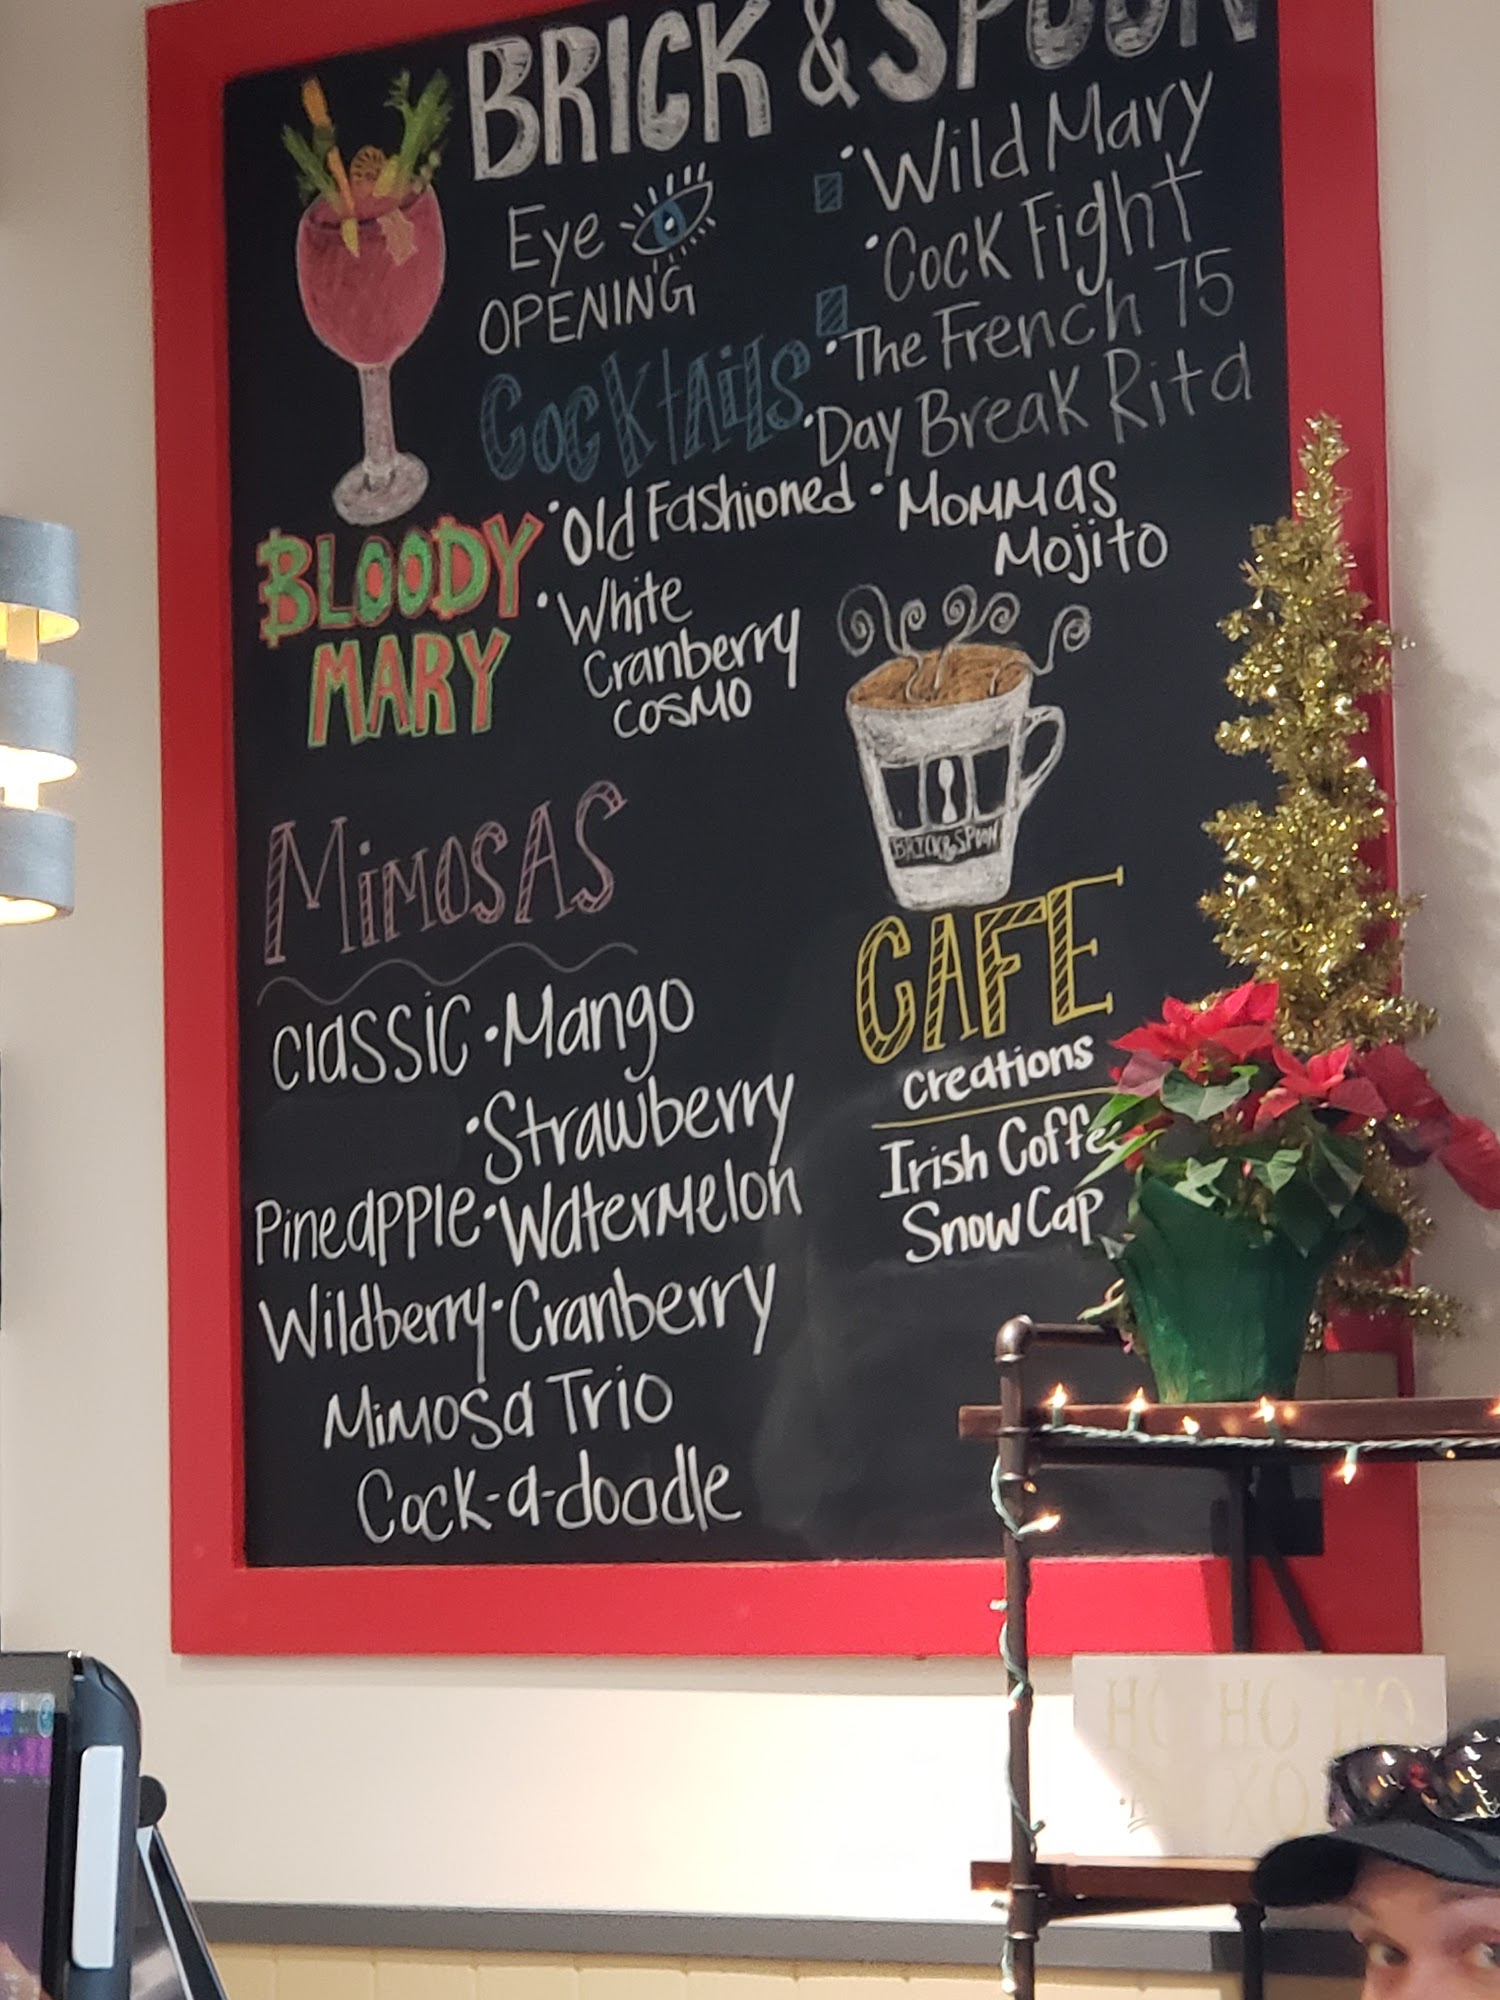 BRICK & SPOON
Eye
OPENING
Cocktails
• Wild Mary
• Cock Fight
• The French 75
• Day Break Rita
• Old Fashioned • Mommas
Mojito
• White
Cranberry
COSMO
BLOODY
MARY
BRICK & SPOON
MimosAS
Classic • Mango
• Strawberry
Pineapple • Watermelon
Wildberry • Cranberry
Mimosa Trio
Cock-a-doodle
CAFE
creations
Irish Coffee
Snow Cap
HO HO HO
XO